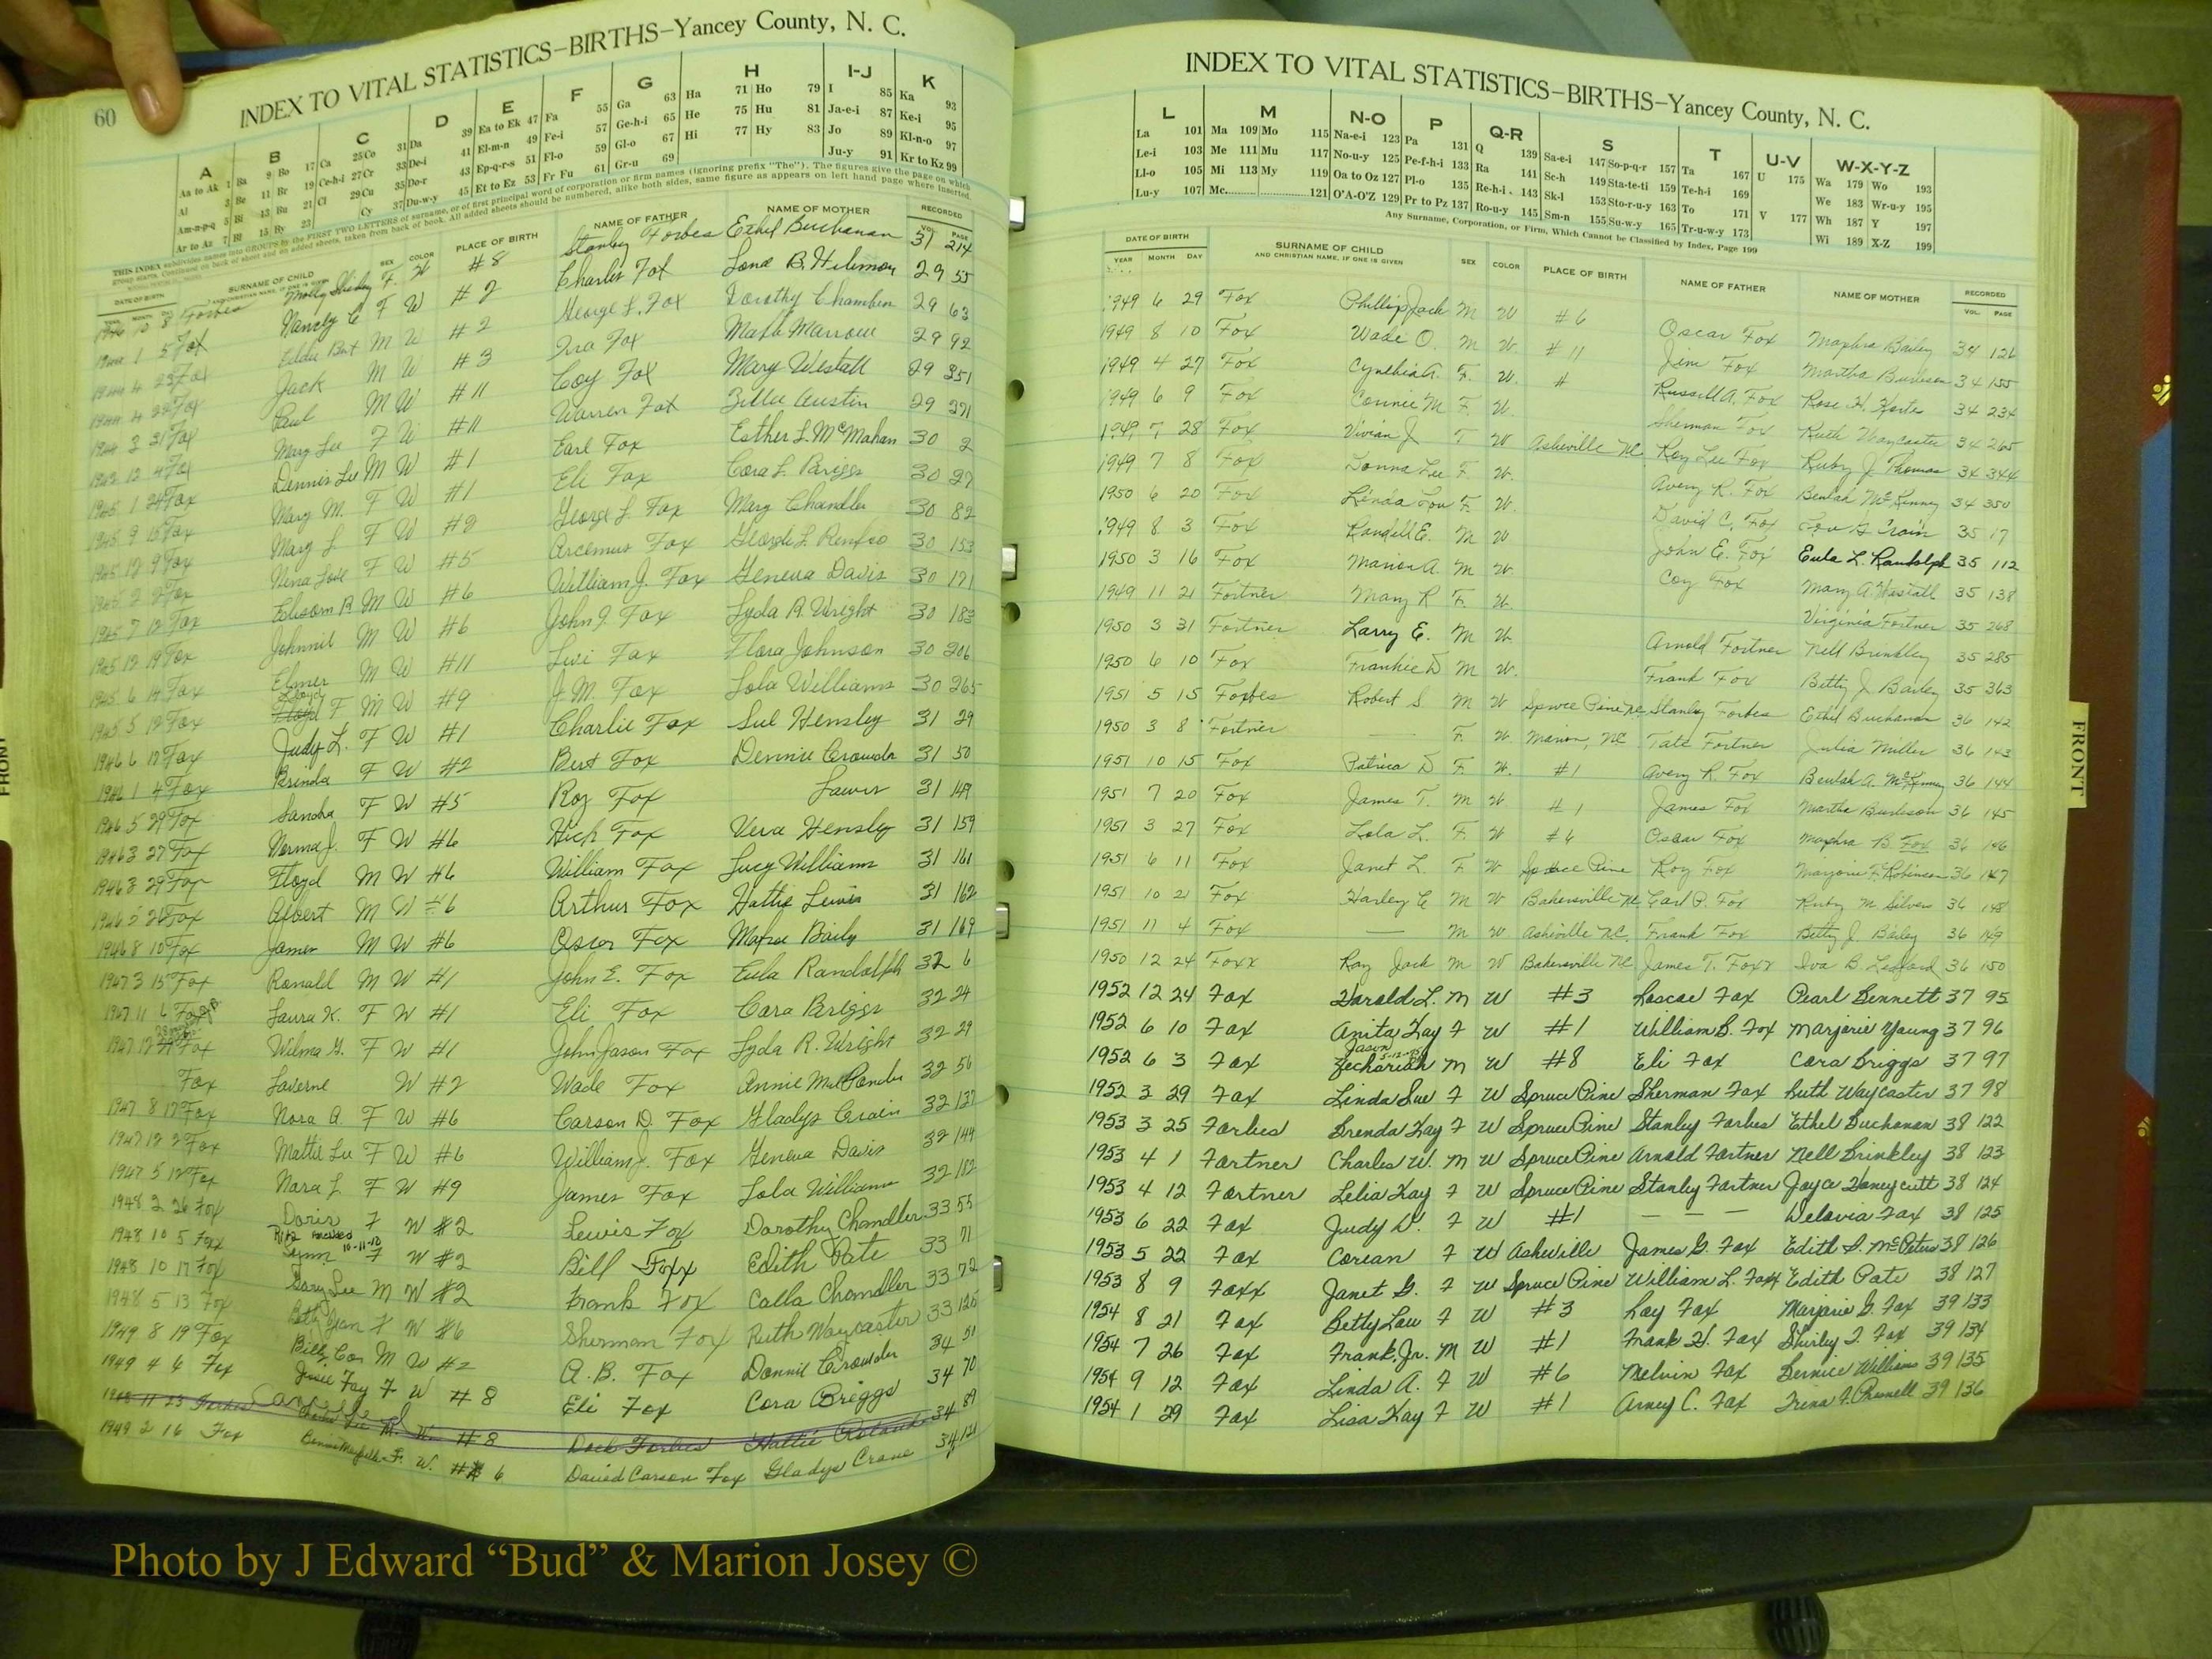 60
INDEX TO VITAL STATISTICS—BIRTHS—Yancey County, N. C.
A B C D E F G H I-J K
Aa to Ak 1 Ba 9 Bo 17 Ca 25 Co 31 Da 39 Ea to Ek 47 Fa 55 Ga 63 Ha 71 Ho 79 I 85 Ka 93
Al 3 Be 11 Br 19 Ce-h-i 27 Cr 33 De-i 41 El-m-n 49 Fe-i 57 Ge-h-i 65 He 75 Hu 81 Ja-e-i 87 Ke-i 95
Am-n-p-q 5 Bi 13 Bu 21 Cl 29 Cu 35 Do-r 43 Ep-q-r-s 51 Fl-o 59 Gl-o 67 Hi 77 Hy 83 Jo 89 Kl-n-o 97
Ar to Az 7 Bl 15 By 23 Cy 37 Du-w-y 45 Et to Ez 53 Fr Fu 61 Gr-u 69 Ju-y 91 Kr to Kz 99
THIS INDEX subdivides names into GROUPS by the FIRST TWO LETTERS of surname, or of first principal word of corporation or firm names (ignoring prefix "The"). The figures give the page on which
group starts. Continued on back of sheet and on added sheets, taken from back of book. All added sheets should be numbered, alike both sides, same figure as appears on left hand page where inserted.
DATE OF BIRTH SURNAME OF CHILD SEX COLOR PLACE OF BIRTH NAME OF FATHER NAME OF MOTHER RECORDED
YEAR MONTH DAY AND CHRISTIAN NAME, IF ONE IS GIVEN VOL. PAGE
8 Forbes Molly Shirley F. W #8 Stanley Forbes Ethel Buchanan 31 214
1 5 Fox Nancy C F W #2 Charles Fox 29 55
4 23 Fox Eddie Burt M W #2 George L. Fox Dorothy Chambers 29 63
4 22 Fox Jack M W #3 Ira Fox 29 92
3 31 Fox Paul M W #11 Coy Fox Mary Westall 29 351
12 4 Fox Mary Lee F W #11 Warren Fox Zilla Austin 29 371
1945 1 24 Fox Dennis Lee M W #1 Earl Fox Esther L. McMahan 30 2
1945 9 15 Fox Mary M. F W #1 Eli Fox Cora L. Briggs 30 27
1945 12 9 Fox Mary L F W #2 George L. Fox Mary Chandler 30 82
1945 2 2 Fox Nina Love F W #5 Arcemus Fox 30 153
1945 7 12 Fox Edison R M W #6 William J. Fox Geneva Davis 30 171
1945 12 19 Fox Johnnie M W #6 John J. Fox Lyda R. Wright 30 183
1945 6 14 Fox Elmer M W #11 Levi Fox Flora Johnson 30 206
1945 5 12 Fox Lloyd F M W #9 J. M. Fox Lola Williams 30 265
1946 6 17 Fox Judy L. F W #1 Charlie Fox Sue Hensley 31 29
1946 1 4 Fox Brinda F W #2 Burt Fox Dennie Crowder 31 50
1946 5 29 Fox Sandra F W #5 Roy Fox Lewis 31 149
1946 3 27 Fox Norma J. F W #6 Hick Fox Vera Hensley 31 159
1946 3 29 Fox Floyd M W #6 William Fox Lucy Williams 31 161
1946 5 26 Fox Albert M W #6 Arthur Fox Hattie Lewis 31 162
1946 8 10 Fox James M W #6 Oscar Fox Mafra Baily 31 169
1947 3 15 Fox Ronald M W #1 John E. Fox Eula Randolph 32 6
1947 11 6 Fox Laura K. F W #1 Eli Fox Cora Briggs 32 24
1947 12 Fox Wilma G. F W #1 John Jason Fox Lyda R. Wright 32 29
Fox Laverne W #2 Wade Fox Annie Mae 32 56
1947 8 17 Fox Nora A. F W #6 Carson D. Fox Gladys Crain 32 137
1947 12 2 Fox Mattie Lee F W #6 William J. Fox Geneva Davis 32 144
1947 5 12 Fox Nora L F W #9 James Fox Lola Williams 32 182
1948 2 26 Fox Doris F W #2 Lewis Fox Dorothy Chandler 33 55
1948 10 5 Foxx Rita Lynn F W #2 Bill Foxx Edith Pate 33 71
1948 10 17 Fox Gary Lee M W #2 Frank Fox Calla Chandler 33 72
1948 5 13 Fox Betty Jean F W #6 Sherman Fox Ruth Waycaster 33 125
1949 8 19 Fox Billy Con M W #2 A. B. Fox Donnie Crowder 34 51
1949 4 6 Fox Jessie Fay F W #8 Eli Fox Cora Briggs 34 70
1948 11 23 Forbes Charles Lee M. W. #8 Dock Forbes Hattie Roland 34 89
Cancelled
1949 2 16 Fox F. W. #6 David Carson Fox Gladys Crane 34 121
INDEX TO VITAL STATISTICS—BIRTHS—Yancey County, N. C.
L M N-O P Q-R S T U-V W-X-Y-Z
La 101 Ma 109 Mo 115 Na-e-i 123 Pa 131 Q 139 Sa-e-i 147 So-p-q-r 157 Ta 167 U 175 Wa 179 Wo 193
Le-i 103 Me 111 Mu 117 No-u-y 125 Pe-f-h-i 133 Ra 141 Sc-h 149 Sta-te-ti 159 Te-h-i 169 We 183 Wr-u-y 195
Ll-o 105 Mi 113 My 119 Oa to Oz 127 Pl-o 135 Re-h-i 143 Sk-l 153 Sto-r-u-y 163 To 171 V 177 Wh 187 Y 197
Lu-y 107 Mc 121 O'A-O'Z 129 Pr to Pz 137 Ro-u-y 145 Sm-n 155 Su-w-y 165 Tr-u-w-y 173 Wi 189 X-Z 199
Any Surname, Corporation, or Firm, Which Cannot be Classified by Index, Page 199
DATE OF BIRTH SURNAME OF CHILD SEX COLOR PLACE OF BIRTH NAME OF FATHER NAME OF MOTHER RECORDED
YEAR MONTH DAY AND CHRISTIAN NAME, IF ONE IS GIVEN VOL. PAGE
1949 6 29 Fox Phillip Jack M W #6 Oscar Fox Maphra Bailey 34 126
1949 8 10 Fox Wade O. M W #11 Jim Fox Martha Burleson 34 155
1949 4 27 Fox Cynthia A. F. W. # Russell A. Fox Rose H. 34 234
1949 6 9 Fox Connie M F. W. Sherman Fox Ruth Waycaster 34 265
1949 7 28 Fox Vivian J F W Asheville NC Roy Lee Fox Ruby J Thomas 34 344
1949 7 8 Fox Donna Lee F W. Avery R. Fox Beulah McKinney 34 350
1950 6 20 Fox Linda Lou F. W. David C. Fox Crain 35 17
1949 8 3 Fox Randell E. M W John E. Fox Eula L. Randolph 35 112
1950 3 16 Fox Marion A. M W. Coy Fox Mary A. Westall 35 138
1949 11 21 Fortner Mary R F. W. Virginia Fortner 35 268
1950 3 31 Fortner Larry E. M W Arnold Fortner Nell Brinkley 35 285
1950 6 10 Fox Frankie D M W. Frank Fox Betty J Bailey 35 363
1951 5 15 Forbes Robert S. M W Spruce Pine NC Stanley Forbes Ethel Buchanan 36 142
1950 3 8 Fortner — F. W. Marion, NC Tate Fortner Julia Miller 36 143
1951 10 15 Fox Patrica D F. W. #1 Avery R. Fox Beulah A. McKinney 36 144
1951 7 20 Fox James T. M W #1 James Fox Martha Burleson 36 145
1951 3 27 Fox Lola L. F. W #6 Oscar Fox Maphra B. Fox 36 146
1951 6 11 Fox Janet L. F W Spruce Pine Roy Fox Marjorie F. Robinson 36 147
1951 10 21 Fox Harley E M W Bakersville NC Earl P. Fox Ruby M Silvers 36 148
1951 11 4 Fox — M W Asheville NC. Frank Fox Betty J Bailey 36 149
1950 12 24 Foxx Ray Jack M W Bakersville NC James T. Foxx Iva B. Ledford 36 150
1952 12 24 Fox Harold L. M W #3 Roscoe Fox Pearl Bennett 37 95
1952 6 10 Fox Anita Kay F W #1 William B. Fox Marjorie Young 37 96
1952 6 3 Fox Jason Zechariah M W #8 Eli Fox Cora Briggs 37 97
1952 3 29 Fox Linda Sue F W Spruce Pine Sherman Fox Ruth Waycaster 37 98
1953 3 25 Forbes Brenda Kay F W Spruce Pine Stanley Forbes Ethel Buchanan 38 122
1953 4 1 Fortner Charles W. M W Spruce Pine Arnold Fortner Nell Brinkley 38 123
1953 4 12 Fortner Lelia Kay F W Spruce Pine Stanley Fortner Joyce Honeycutt 38 124
1953 6 22 Fox Judy D. F W #1 — — — Delovia Fox 38 125
1953 5 22 Fox Corean F W Asheville James G. Fox Edith S. McPeters 38 126
1953 8 9 Foxx Janet G. F W Spruce Pine William L. Foxx Edith Pate 38 127
1954 8 21 Fox Betty Lou F W #3 Ray Fox Marjorie G. Fox 39 133
1954 7 26 Fox Frank, Jr. M W #1 Frank H. Fox Shirley J. Fox 39 134
1954 9 12 Fox Linda A. F W #6 Melvin Fox Bernice Williams 39 135
1954 1 29 Fox Lisa Kay F W #1 Arney C. Fox Trena F. 39 136
FRONT
FRONT
Photo by J Edward “Bud” & Marion Josey ©